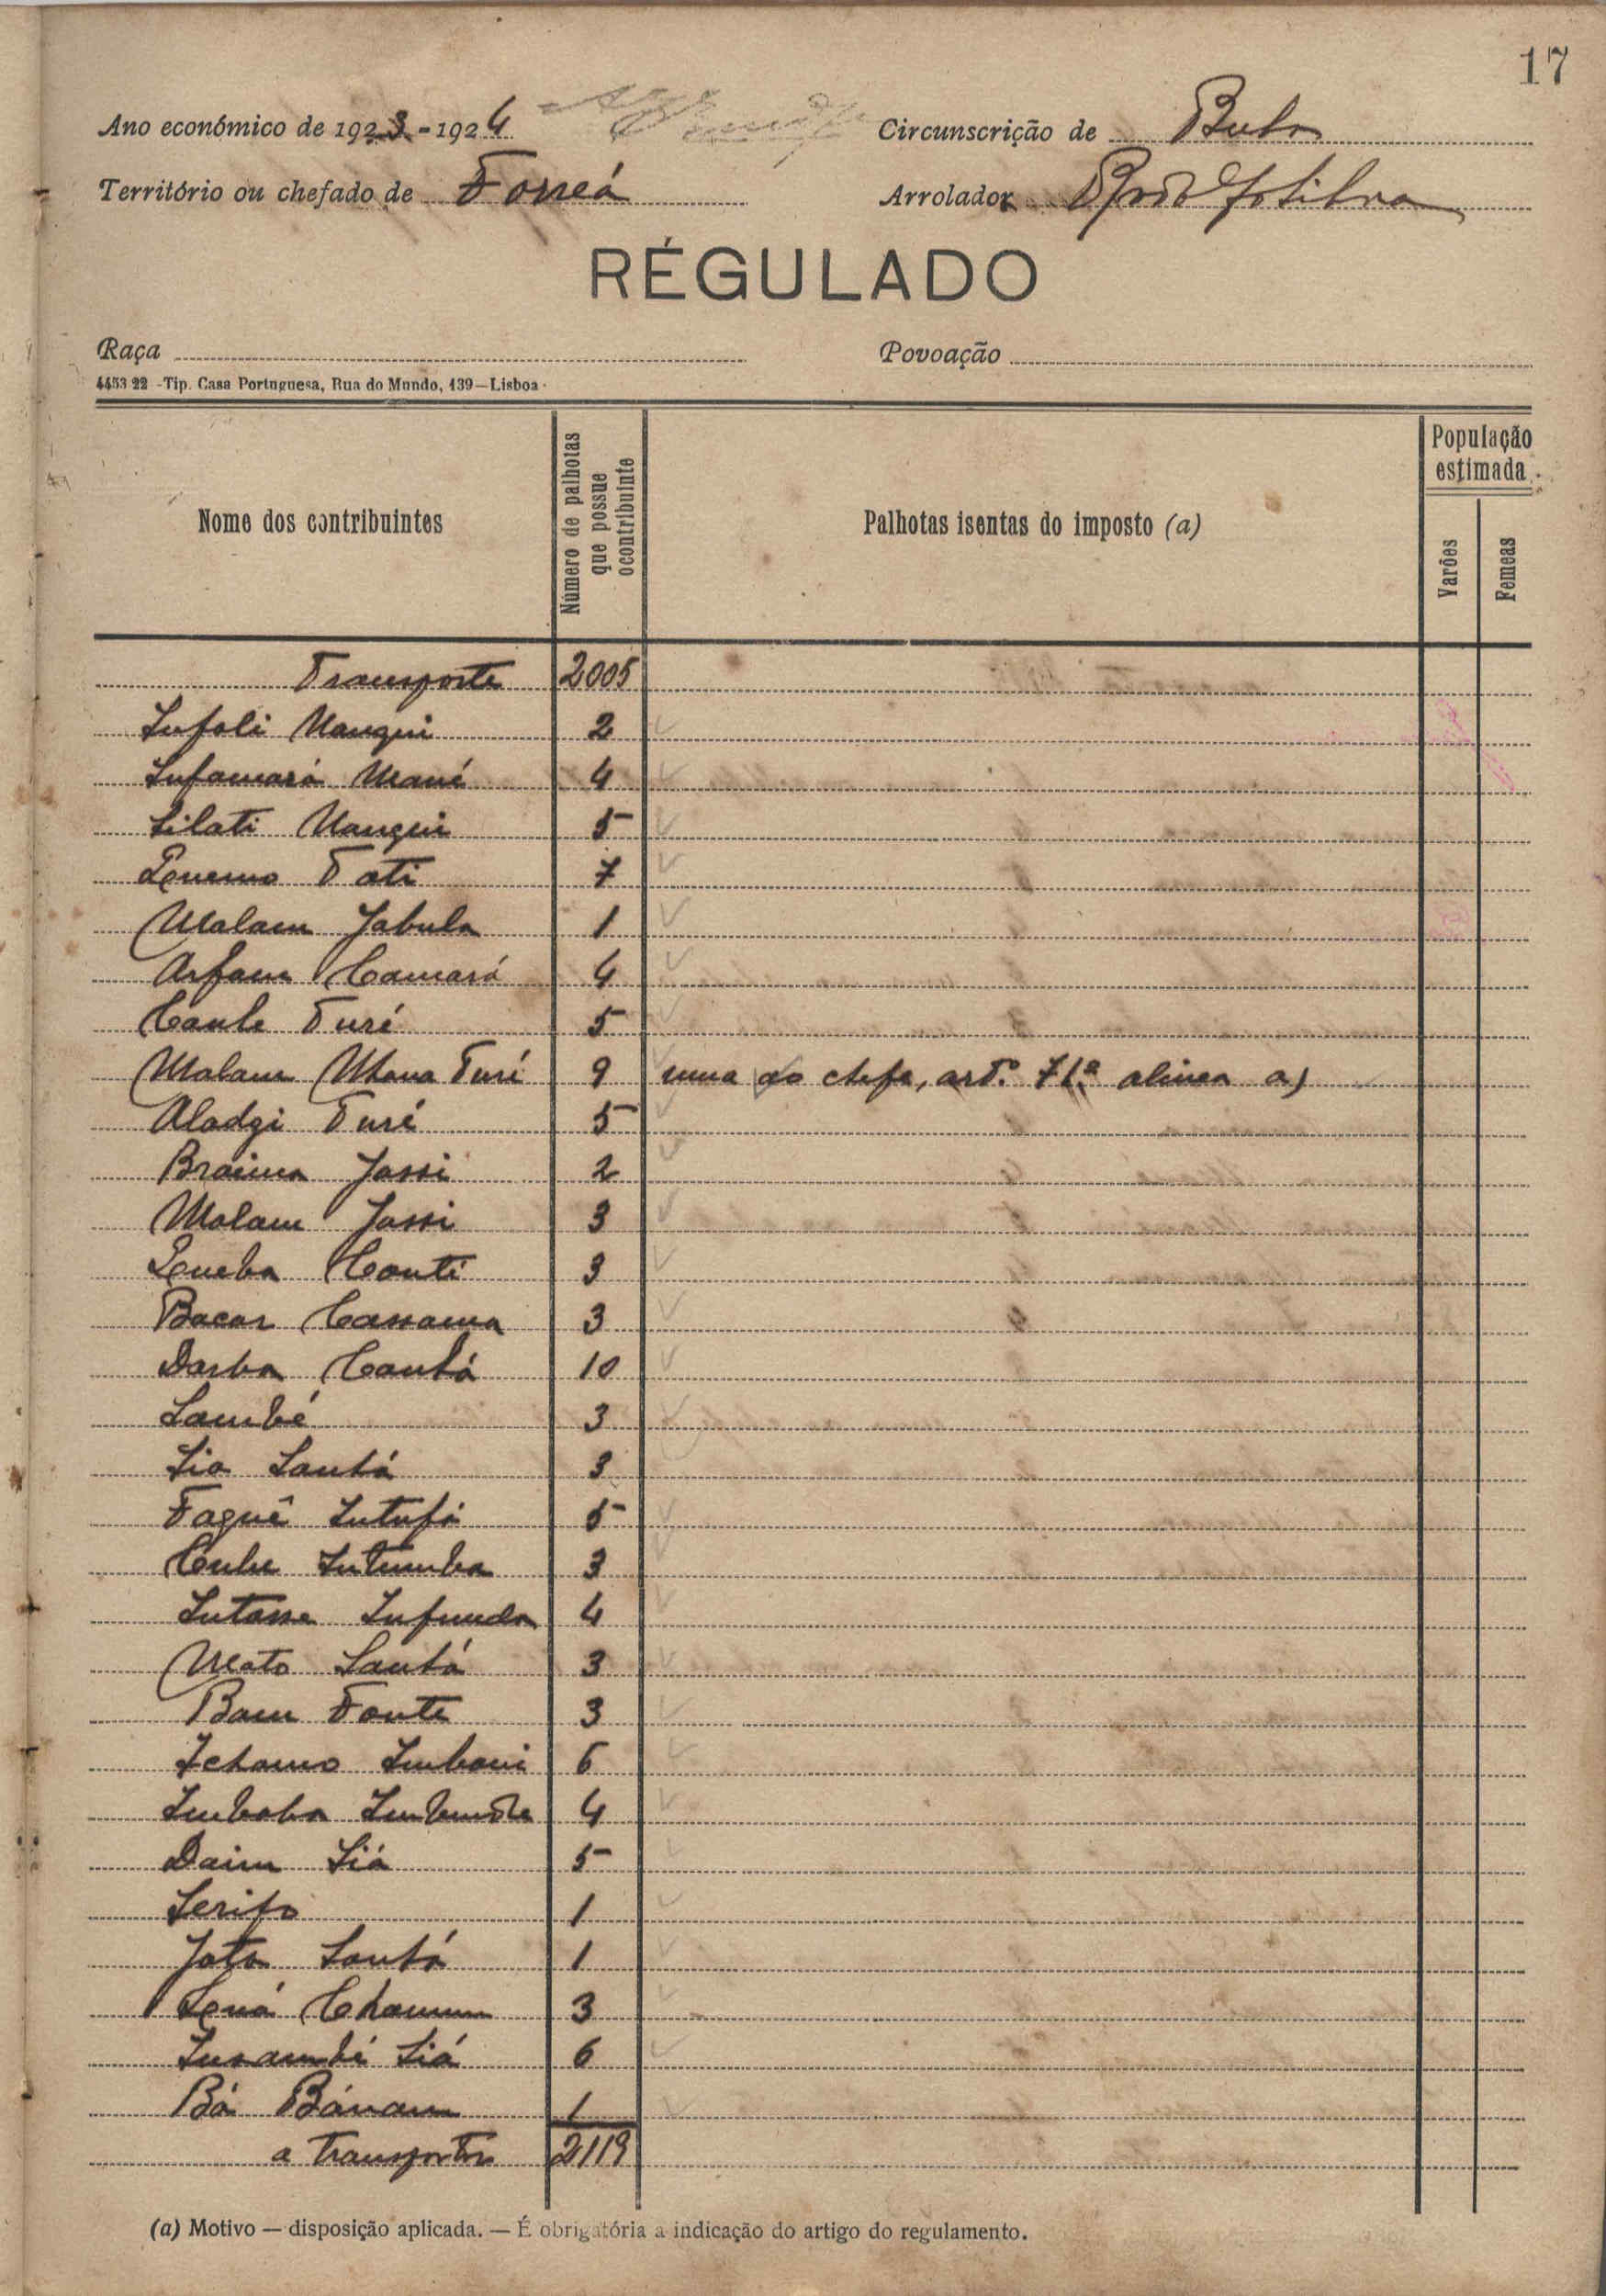 17
Ano económico de 1923-1924 Circunscrição de Buba
Território ou chefado de Forreá Arrolador Rodolfo Silva
RÉGULADO
Raça Povoação
4453 22 - Tip. Casa Portuguesa, Rua do Mundo, 139—Lisboa
Nome dos contribuintes Número de palhotas que possue ocontribuinte Palhotas isentas do imposto (a) População estimada Varões Femeas
Transporte 2005
Sufoli Nanqui 2
Infamará Mané 4
Silati Nanqui 5
Quemo Fati 7
Malam Jabula 1
Arfam Camará 4
Caule Turé 5
Malam Mana Turé 9 uma do chefe, artº 71º alinea a)
Aladgi Turé 5
Braima Jassi 2
Malam Jassi 3
Queba Conté 3
Bacar Cassama 3
Darba Cantá 10
Sambé 3
Sia Santá 3
Faquê Intufá 5
Intumba 3
Intasse Infunda 4
Nhato Santá 3
Bam Fonte 3
Ichamo Imboni 6
Imbaba 4
Daim Siá 5
Serifo 1
Jata Santá 1
Quá Chamum 3
Insambé Siá 6
Bá Bánam 1
a transportar 2119
(a) Motivo — disposição aplicada. — É obrigatória a indicação do artigo do regulamento.